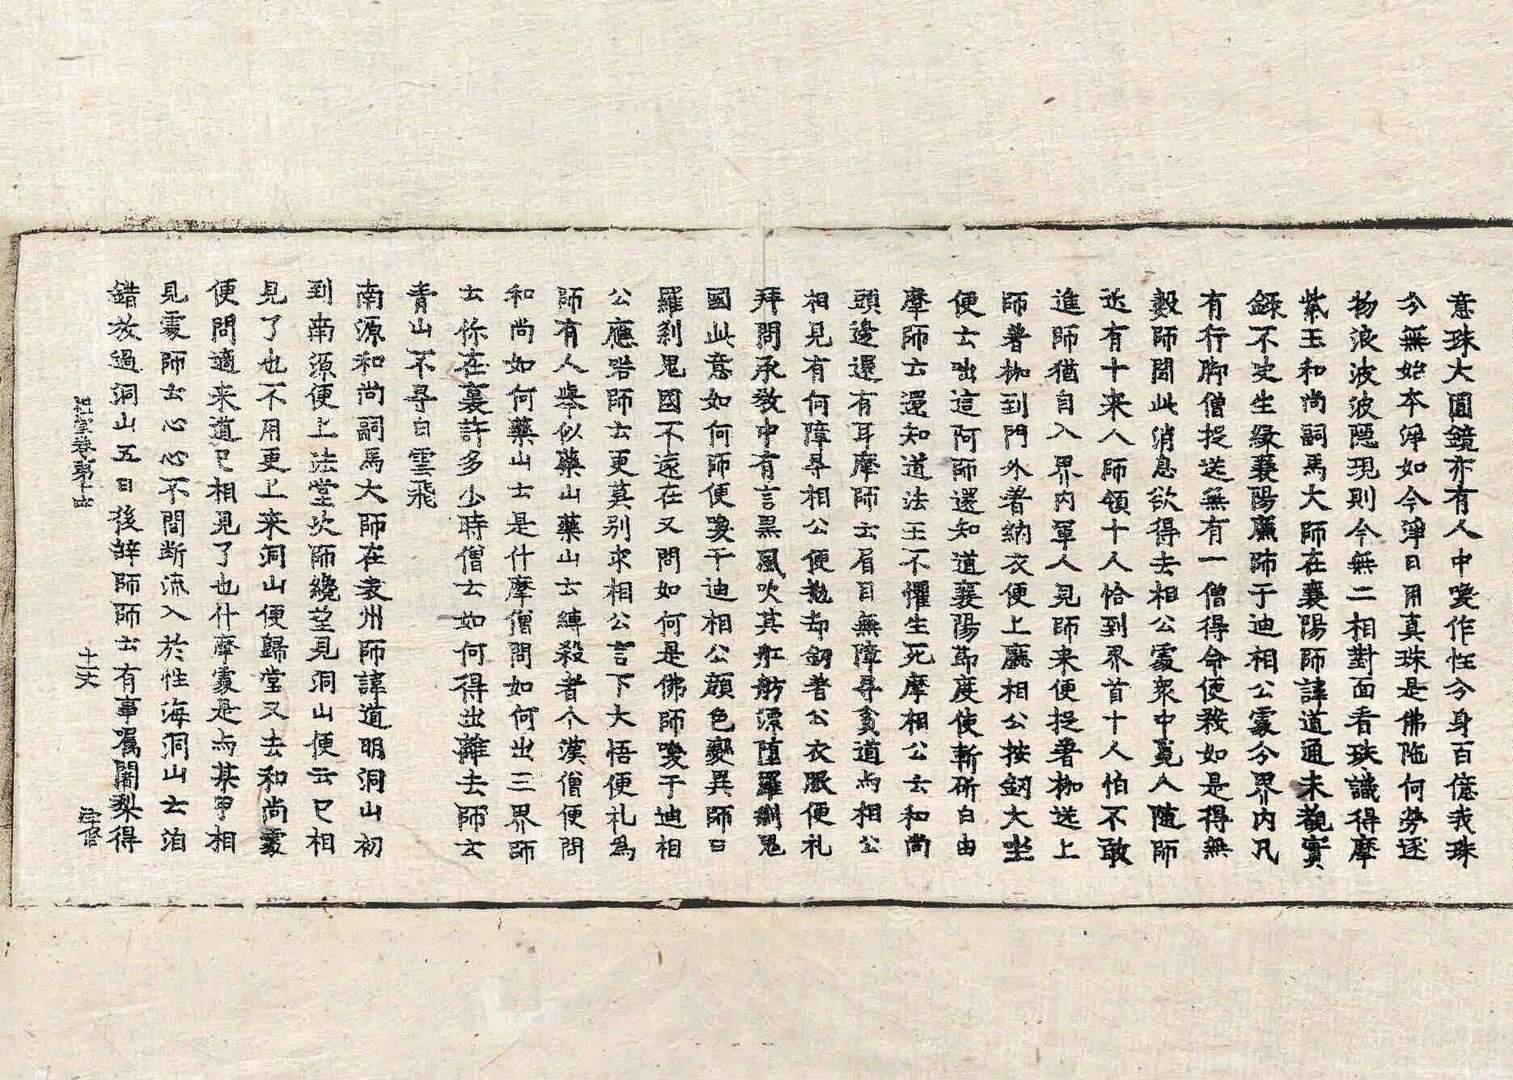 意珠大圓鏡亦有人中喚作性分身百億我珠
分無始本淨如今淨日用真珠是佛陁何勞逐
物浪波波隱現則今無二相對面看珠識得摩
紫玉和尚嗣馬大師在襄陽師諱道通未覩實
錄不決生緣襄陽廉帥于迪相公處分界內凡
有行脚僧捉送無有一僧得命便殺如是得無
數師聞此消息欲得去相公處衆中覓人隨師
近有十來人師領十人恰到界首十人怕不敢
進師猶自入界內軍人見師來便捉著枷送上
師著枷到門外著納衣便上廳相公按釼大坐
便云咄這阿師還知道襄陽節度使斬斫自由
摩師云還知道法王不懼生死摩相公云和尚
頭邊還有耳摩師云眉目無障㝵貧道与相公
相見有何障㝵相公便抛却釼著公衣服便礼
拜問承教中有言黑風吹其舡舫漂墮羅剎鬼
國此意如何師便喚于迪相公顏色變異師曰
羅剎鬼國不遠在又問如何是佛師喚于迪相
公應喏師云更莫別求相公言下大悟便礼為
師有人舉似藥山藥山云縛殺者个漢僧便問
和尚如何藥山云是什摩僧問如何出三界師
云你在裏許多少時僧云如何得出離去師云
青山不㝵白雲飛
南源和尚嗣馬大師在袁州師諱道明洞山初
到南源便上法堂次師纔望見洞山便云已相
見了也不用更上來洞山便歸堂又去和尚處
便問適來道已相見了也什摩處是与某甲相
見處師云心心不間断流入於性海洞山云洎
錯放過洞山五日後辞師師云有事囑闍梨得
祖堂卷第十四
十一丈